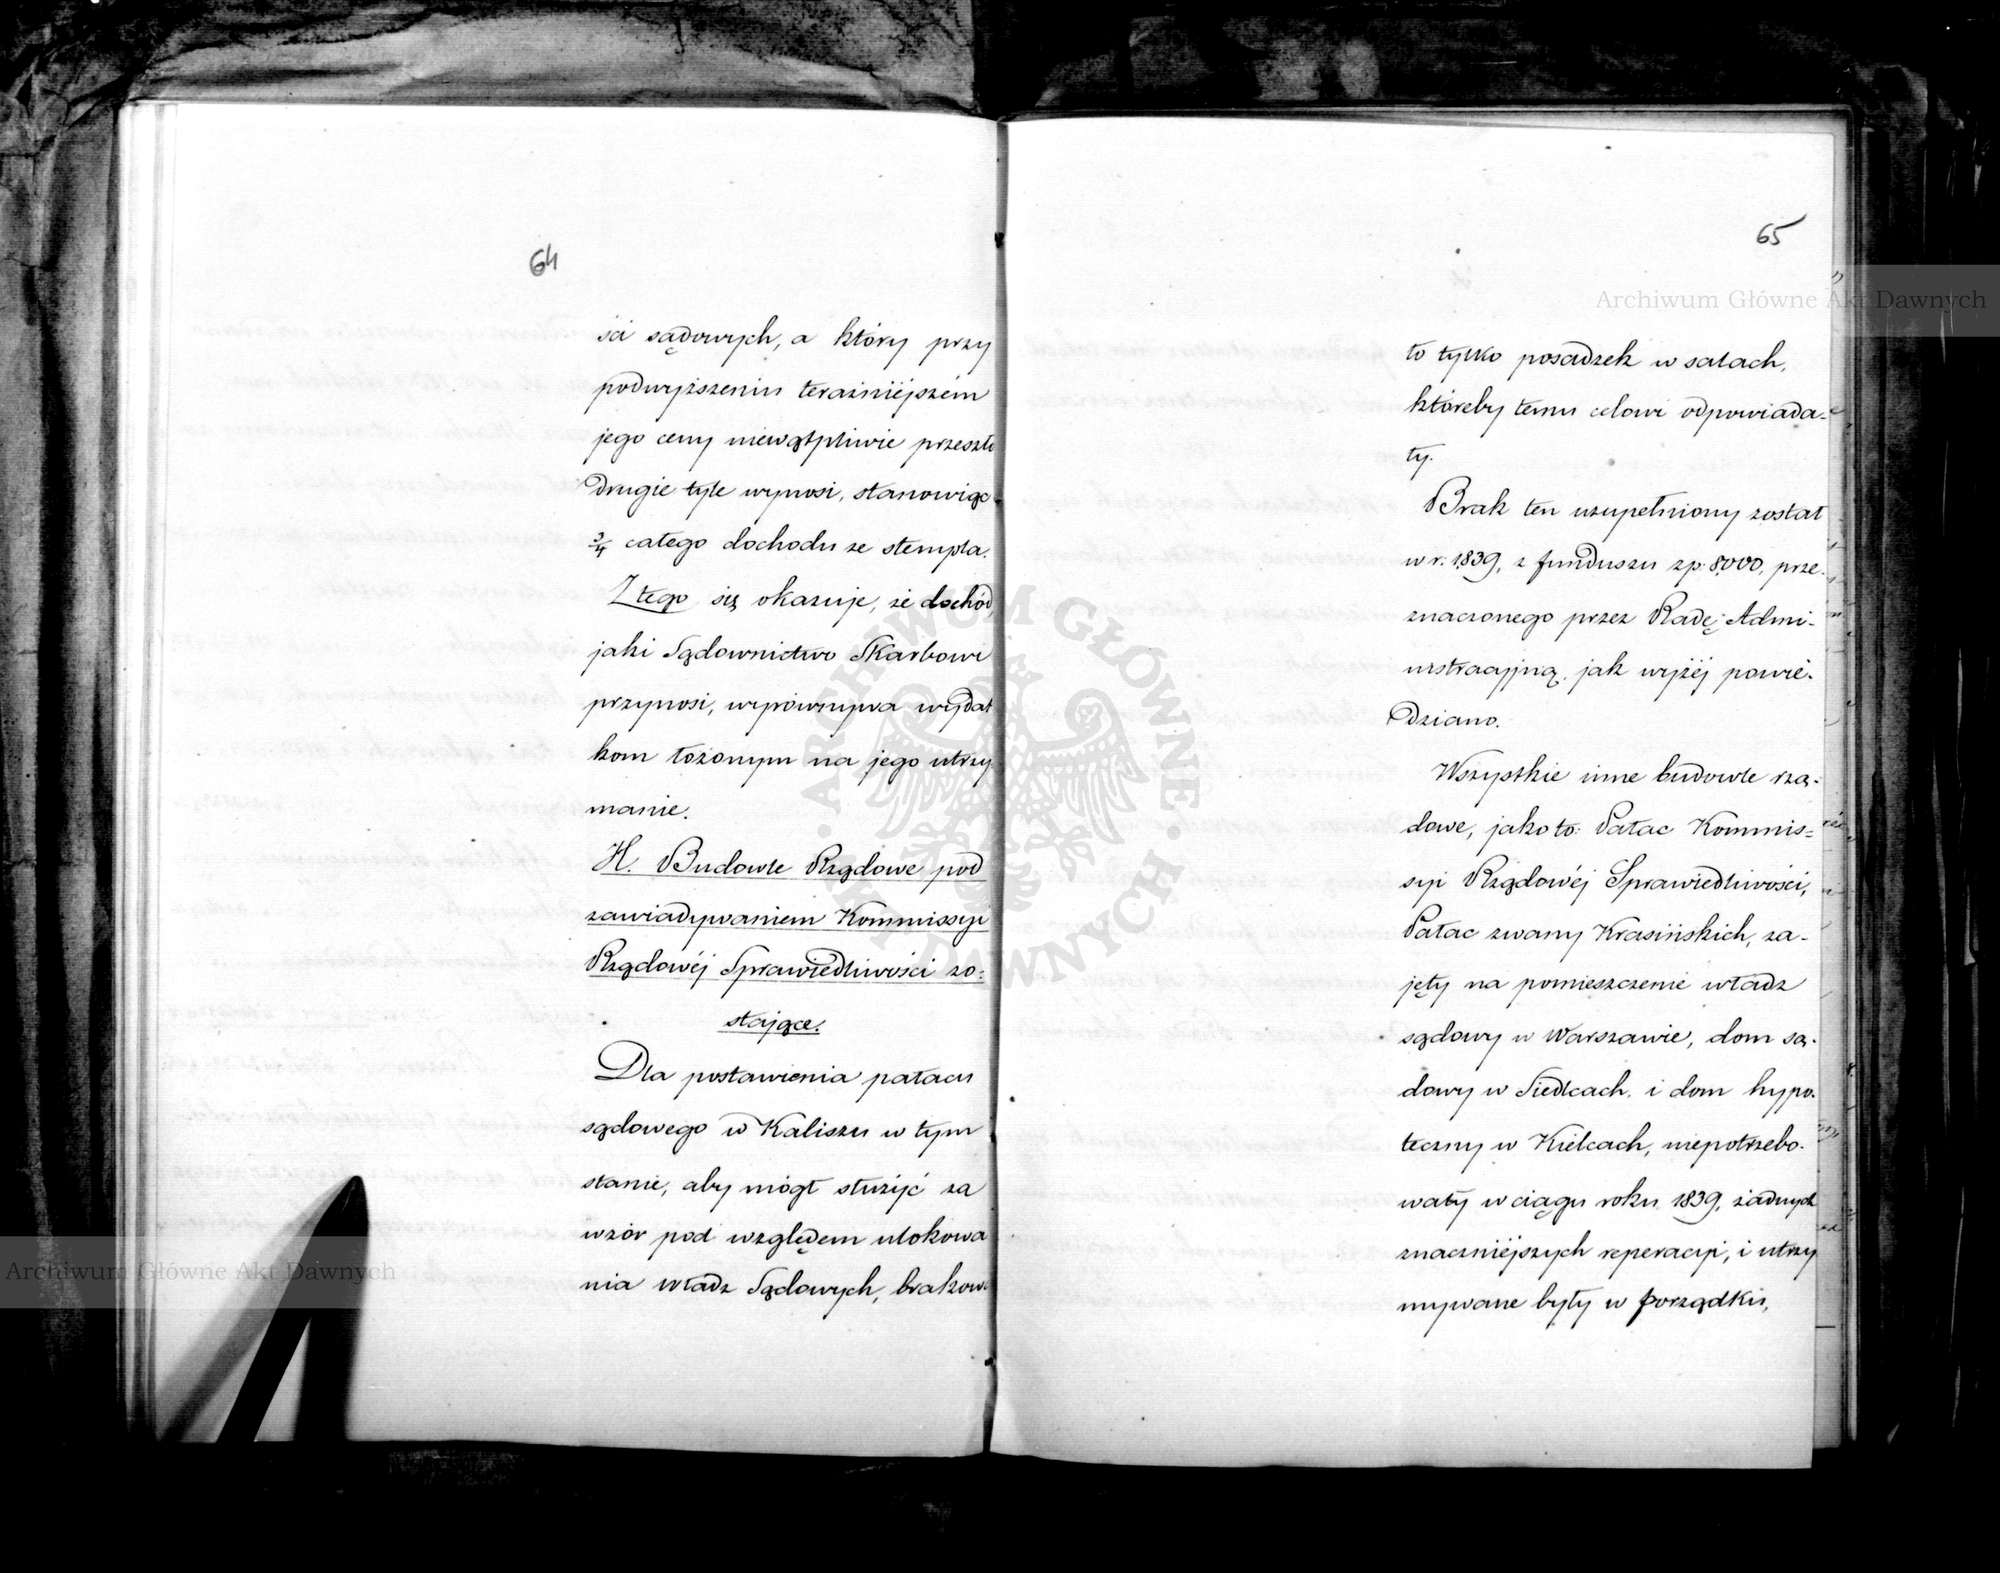 64
ści sądowych, a który przy
podwyższeniu teraźniéjszém
jego ceny niewątpliwie przeszło
drugie tyle wynosi, stanowiąc
3/4 całego dochodu ze stempla.
Z tego się okazuje, że dochód,
jaki Sądownictwo Skarbowi
przynosi, wyrównywa wydat
kom łożonym na jego utrzy
manie.
H. Budowle Rządowe pod
zawiadywaniem Kommissyi
Rządowéj Sprawiedliwości zo=
stające.
Dla postawienia pałacu
sądowego w Kaliszu w tym
stanie, aby mógł służyć za
wzór pod względem ulokowa
nia władz Sądowych, brakow
65
to tylko posadzek w salach,
któreby temu celowi odpowiada=
ły.
Brak ten uzupełniony został
w r. 1839, z funduszu zp. 8000, prze-
znaczonego przez Radę Admi-
nistracyjną, jak wyżéj powie-
dziano.
Wszystkie inne budowle rzą-
dowe, jako to: Pałac Kommis=
syi Rządowéj Sprawiedliwości,
Pałac zwany Krasińskich, za-
jęty na pomieszczenie władz
sądowy w Warszawie, dom są-
dowy w Siedlcach, i dom hypo-
teczny w Kielcach, niepotrzebo-
wały w ciągu roku 1839, żadnych
znaczniéjszych reperacyi, i utrzy
mywane były w porządku,
Archiwum Główne Akt Dawnych
Archiwum Główne Akt Dawnych
ARCHIWUM GŁÓWNE AKT DAWNYCH